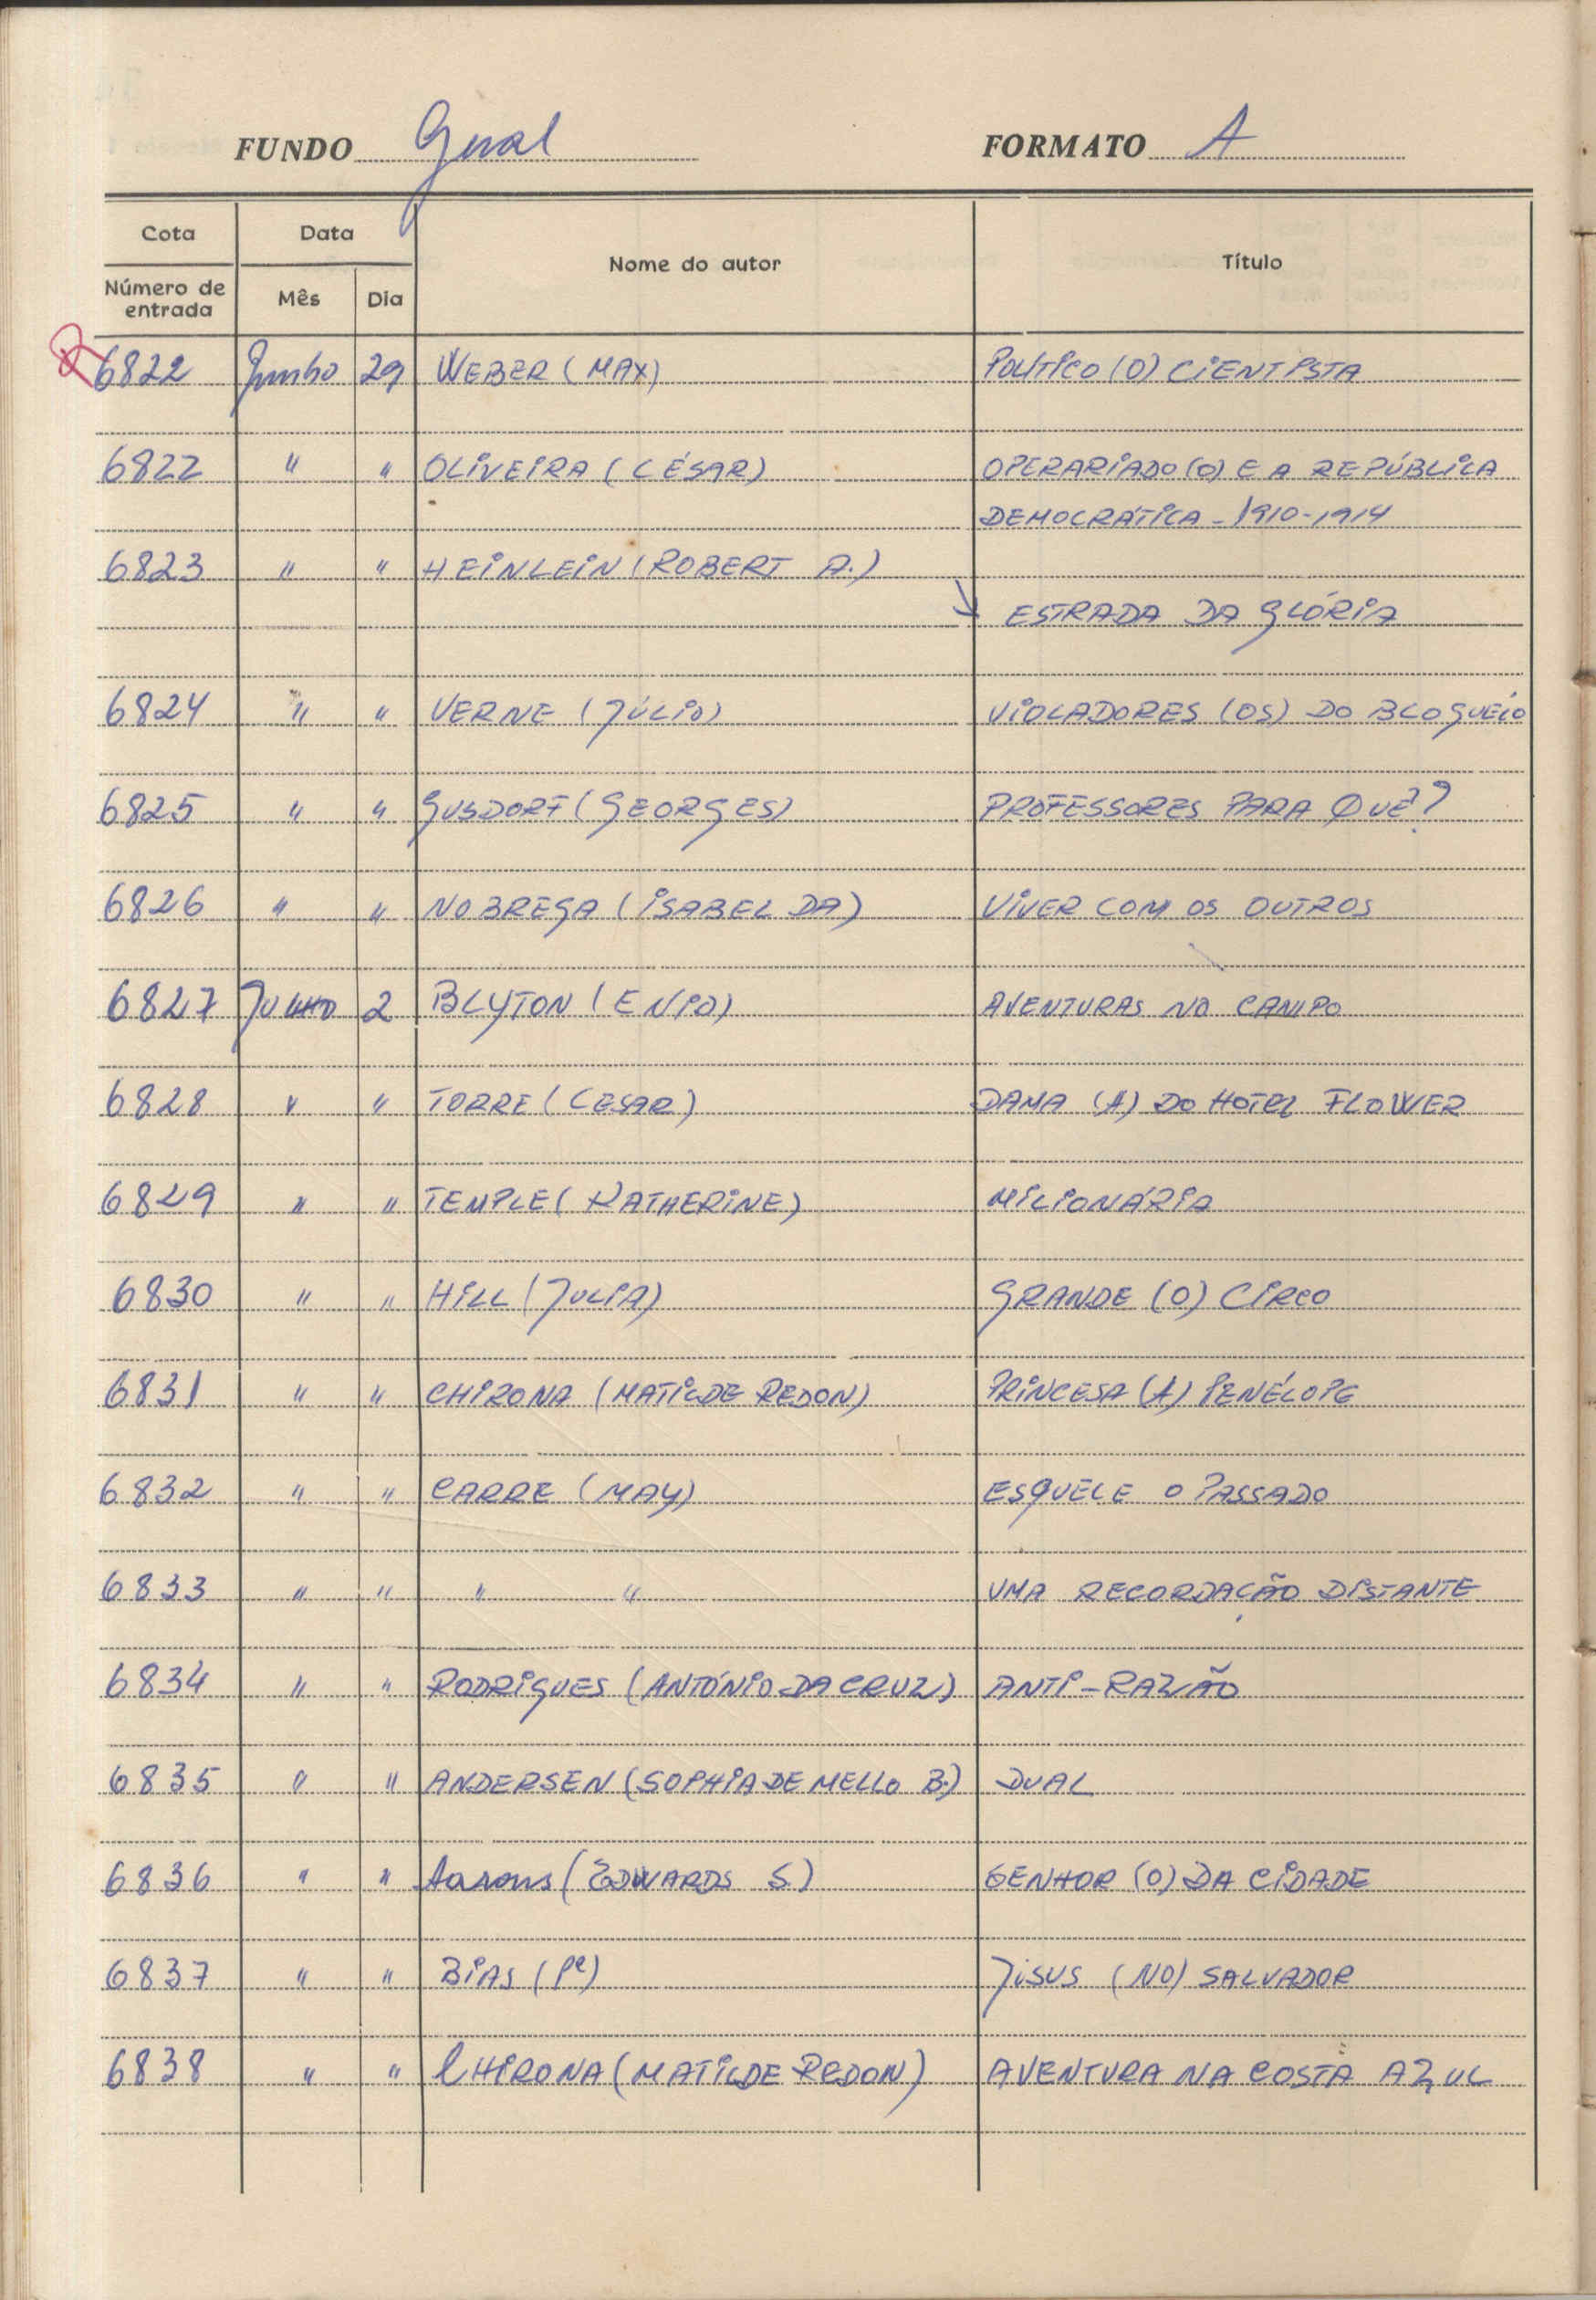 FUNDO Geral FORMATO A
Cota Data Nome do autor Título
Número de entrada Mês Dia
6822 Junho 29 WEBER (MAX) POLITICO (O) CIENTISTA
6822 " " OLIVEIRA (CÉSAR) OPERARIADO (O) E A REPÚBLICA
DEMOCRÁTICA - 1910-1914
6823 " " HEINLEIN (ROBERT A.)
ESTRADA DA GLÓRIA
6824 " " VERNE (JÚLIO) VIOLADORES (OS) DO BLOQUEIO
6825 " " GUSDORF (GEORGES) PROFESSORES PARA QUÊ?
6826 " " NOBREGA (ISABEL DA) VIVER COM OS OUTROS
6827 JULHO 2 BLYTON (ENID) AVENTURAS NO CAMPO
6828 " " TORRE (CESAR) DAMA (A) DO HOTEL FLOWER
6829 " " TEMPLE (KATHERINE) MILIONÁRIA
6830 " " HILL (JULIA) GRANDE (O) CIRCO
6831 " " CHIRONA (MATILDE REDON) PRINCESA (A) PENÉLOPE
6832 " " CARRE (MAY) ESQUELE O PASSADO
6833 " " " " UMA RECORDAÇÃO DISTANTE
6834 " " RODRIGUES (ANTÓNIO DA CRUZ) ANTI-RAZÃO
6835 " " ANDERSEN (SOPHIA DE MELLO B.) DUAL
6836 " " Aarons (EDWARDS S.) SENHOR (O) DA CIDADE
6837 " " BIAS (Pe) JISUS (NO) SALVADOR
6838 " " CHIRONA (MATILDE REDON) AVENTURA NA COSTA AZUL